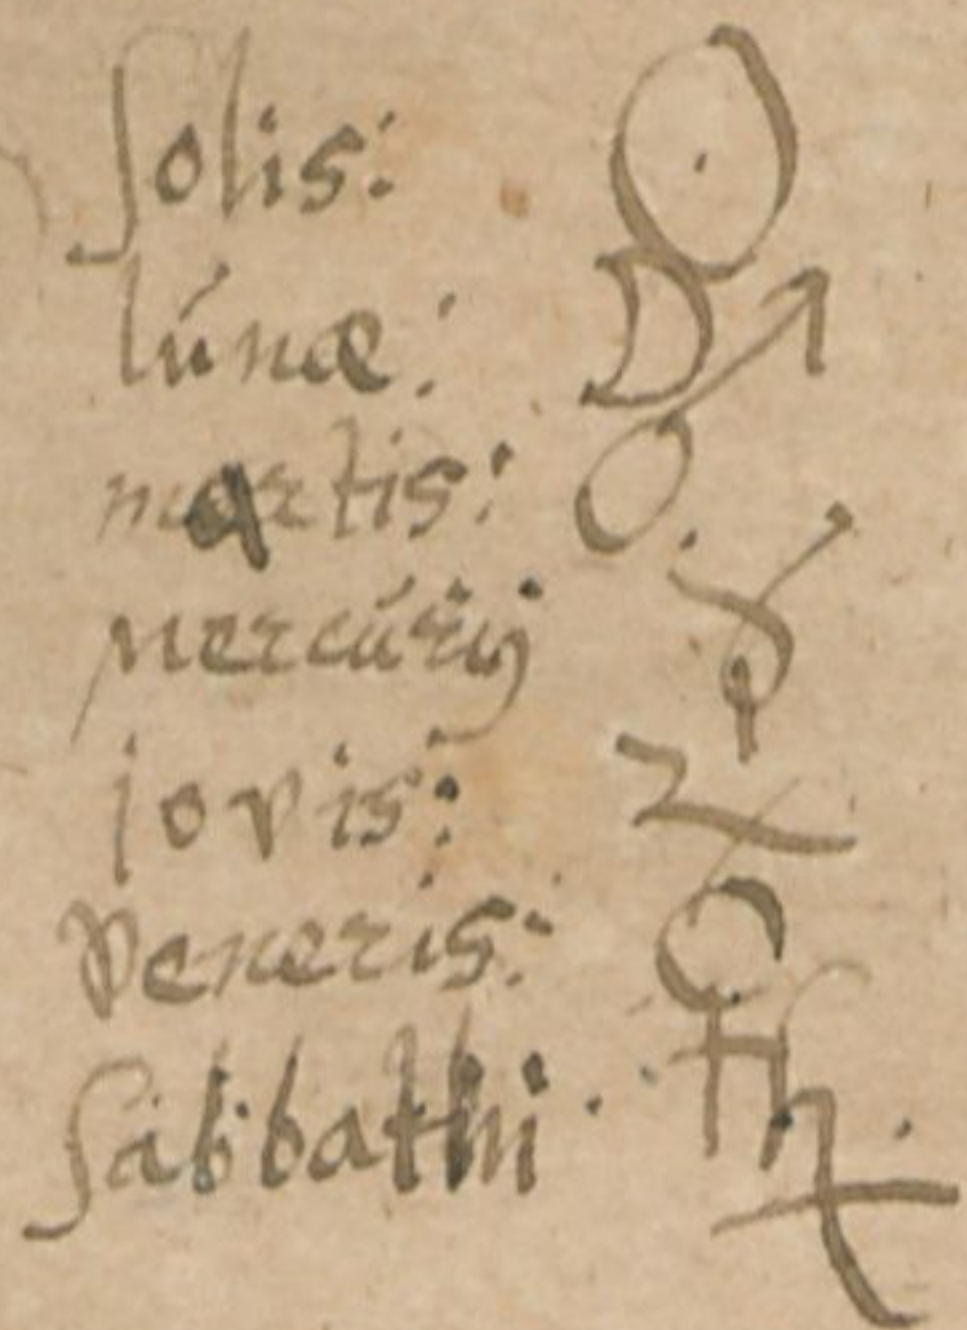 solis: ☉
lúnæ: ☽
martis: ♂.
Mercúrij ☿
jovis: ♃
Veneris: ♀
Sabbathi · ♄.